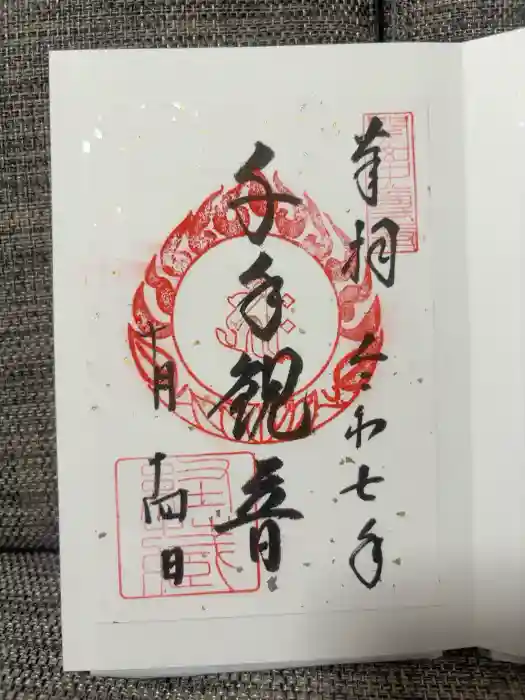 奉拝 令和七年
千手観音
十月 十四日